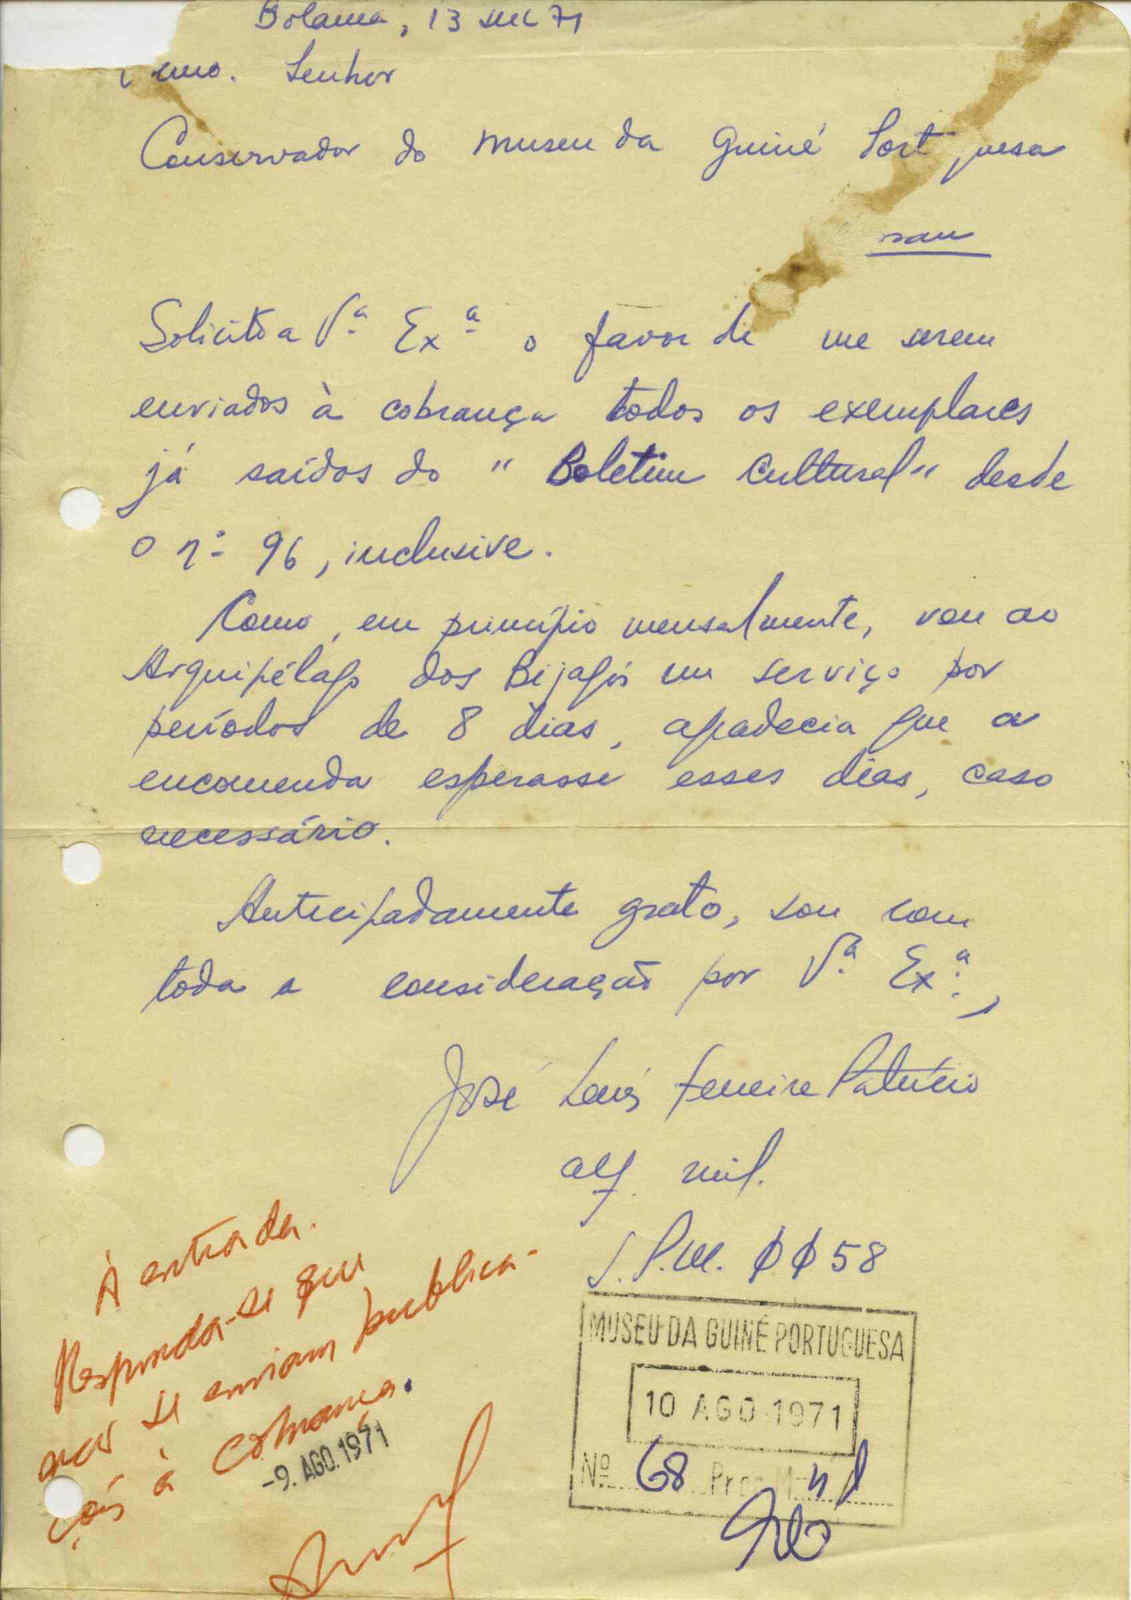 Bolama, 13 JUL 71
Exmo. Senhor
Conservador do Museu da Guiné Port uesa
Solicito a V.ª Ex.ª o favor de me serem
enviados à cobrança todos os exemplares
já saídos do "Boletim Cultural" desde
o nº 96, inclusive.
Como, em princípio mensalmente, vou ao
Arquipélago dos Bijagós em serviço por
períodos de 8 dias, agradecia que a
encomenda esperasse esses dias, caso
necessário.
Antecipadamente grato, sou com
toda a consideração por V.ª Ex.ª,
José Luís Ferreira Patrício
alf. mil.
S.P.M. 0058
À entrada.
Responda-se que
não se enviam publica-
ções à cobrança.
-9. AGO. 1971
MUSEU DA GUINÉ PORTUGUESA
10 AGO 1971
Nº 68